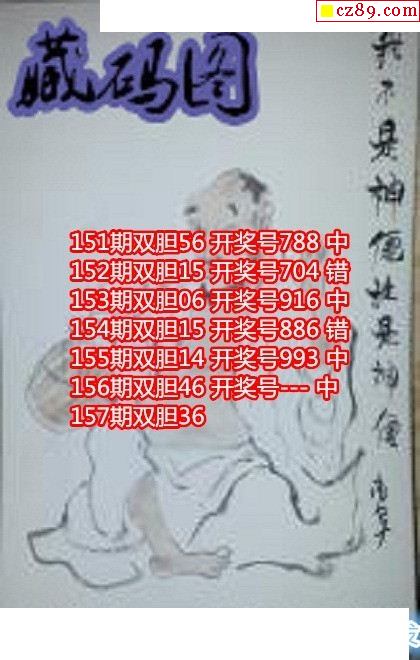 cz89.com
藏码图
我不是神僊谁是神僊
151期双胆56 开奖号788 中
152期双胆15 开奖号704 错
153期双胆06 开奖号916 中
154期双胆15 开奖号886 错
155期双胆14 开奖号993 中
156期双胆46 开奖号--- 中
157期双胆36